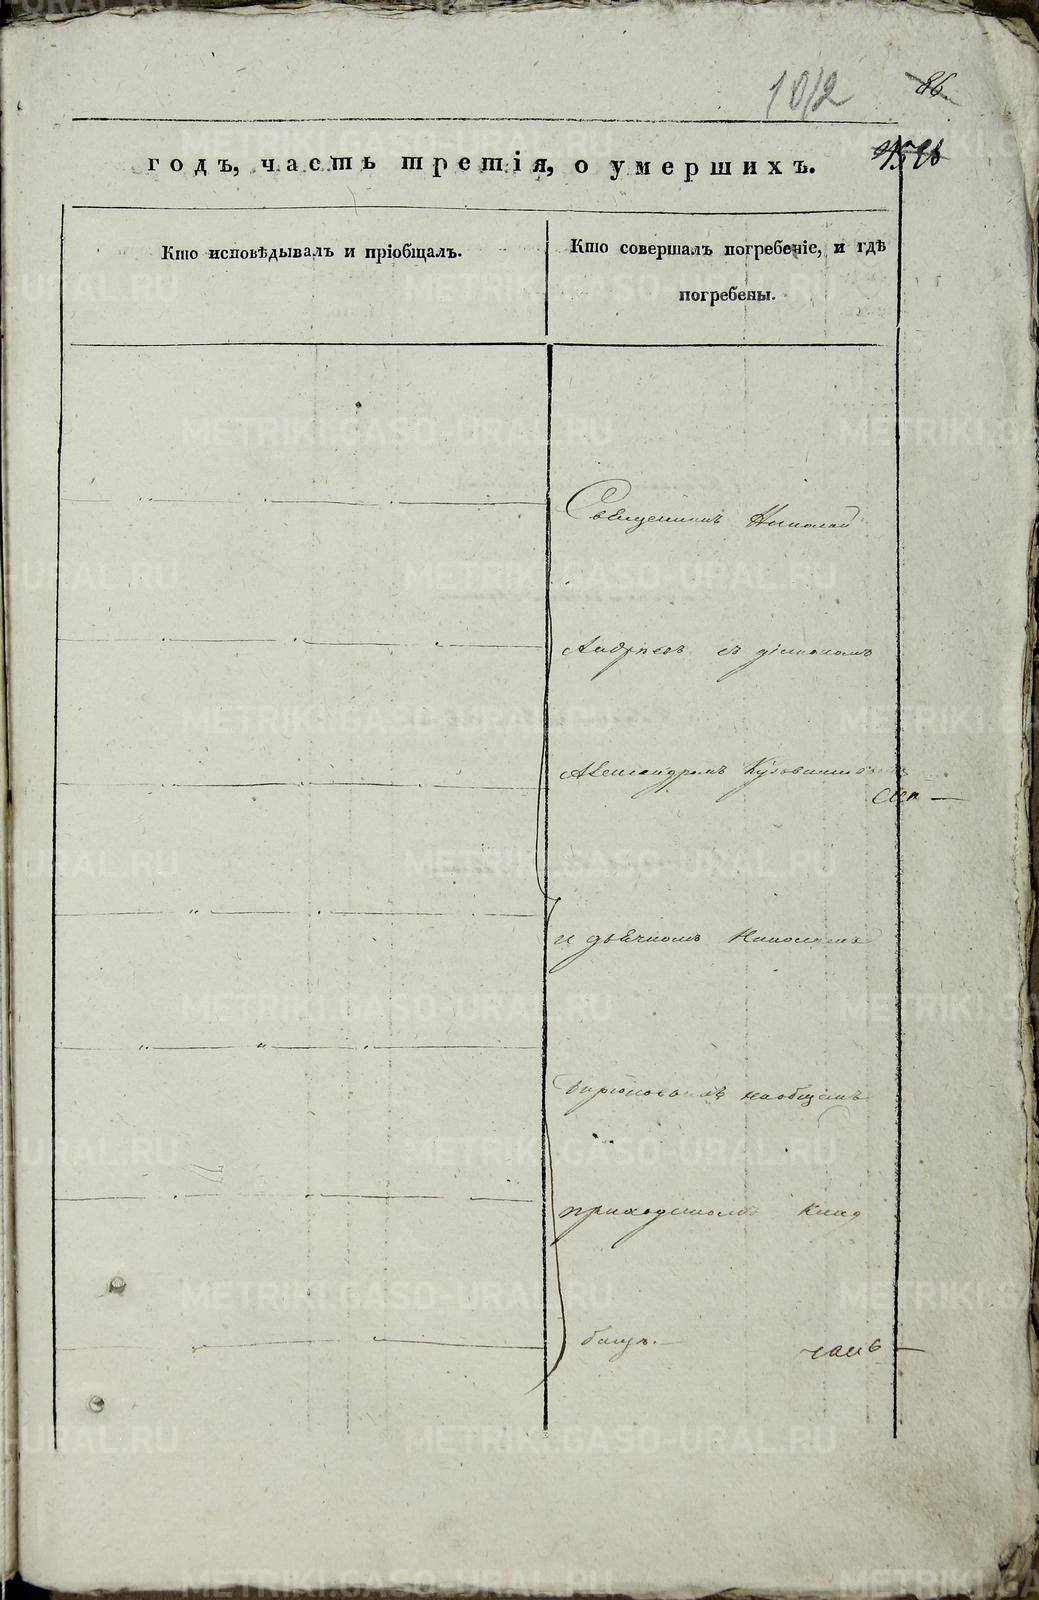 10/2
86
годъ, часть третія, о умершихъ.
Кто исповѣдывалъ и пріобщалъ.
Кто совершалъ погребеніе, и гдѣ
погребены.
Священникъ Николай
Андреевъ съ діакономъ
Александромъ
и дьячкомъ Николаемъ
наобщемъ
приходскомъ клад
бищѣ.
METRIKI.GASO-URAL.RU